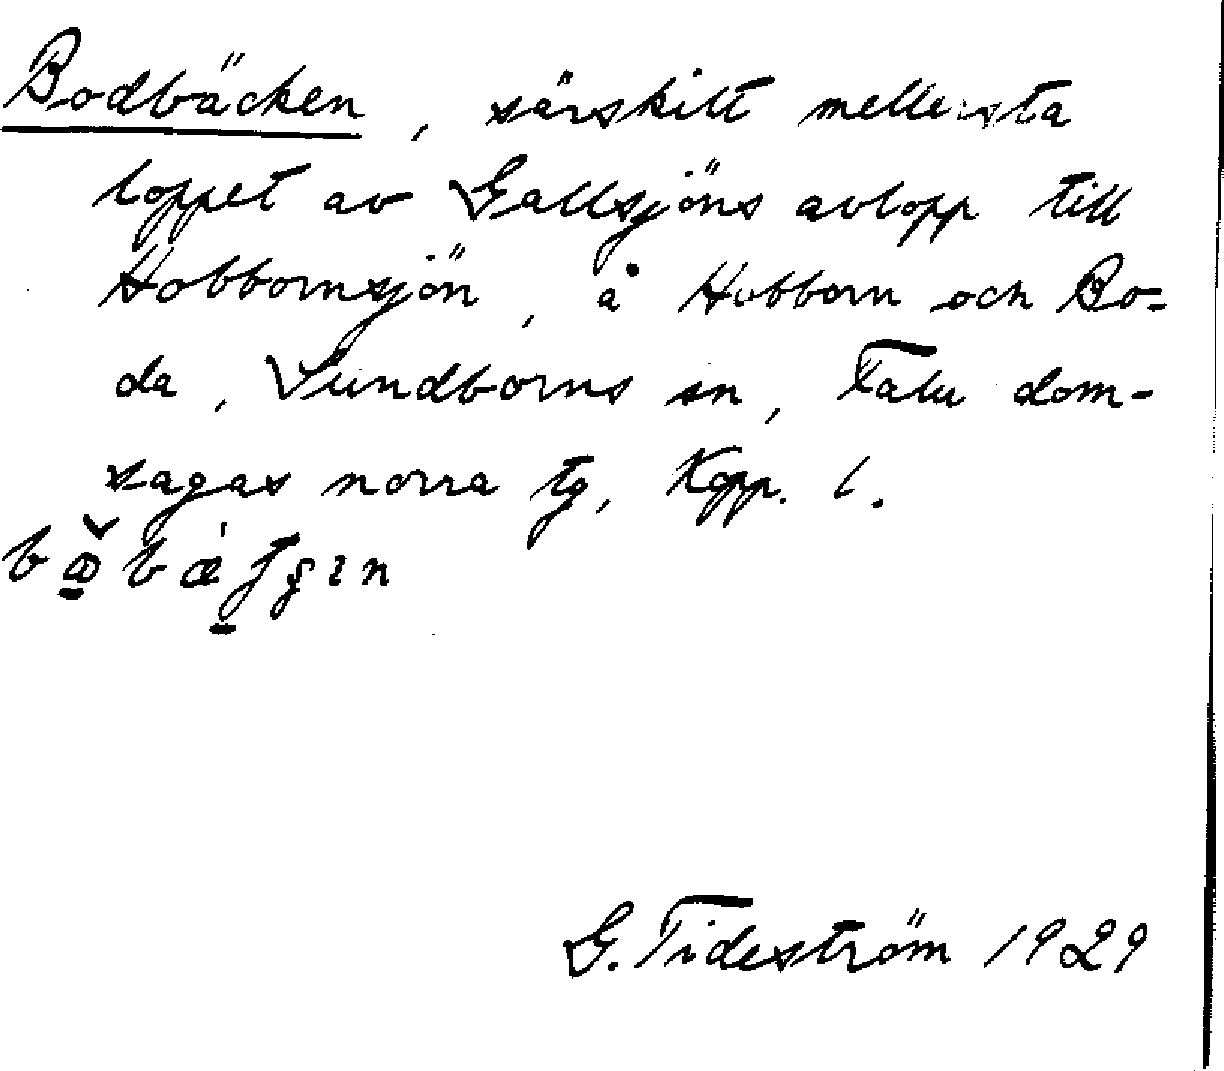 Bodbäcken, särskilt mellersta
loppet av Gallsjöns avlopp till
Hobbornsjön, å Hobborn och Bo-
da, Sundborns sn, Falu dom-
sagas norra tg, Kopp. l.
G. Tideström 1929